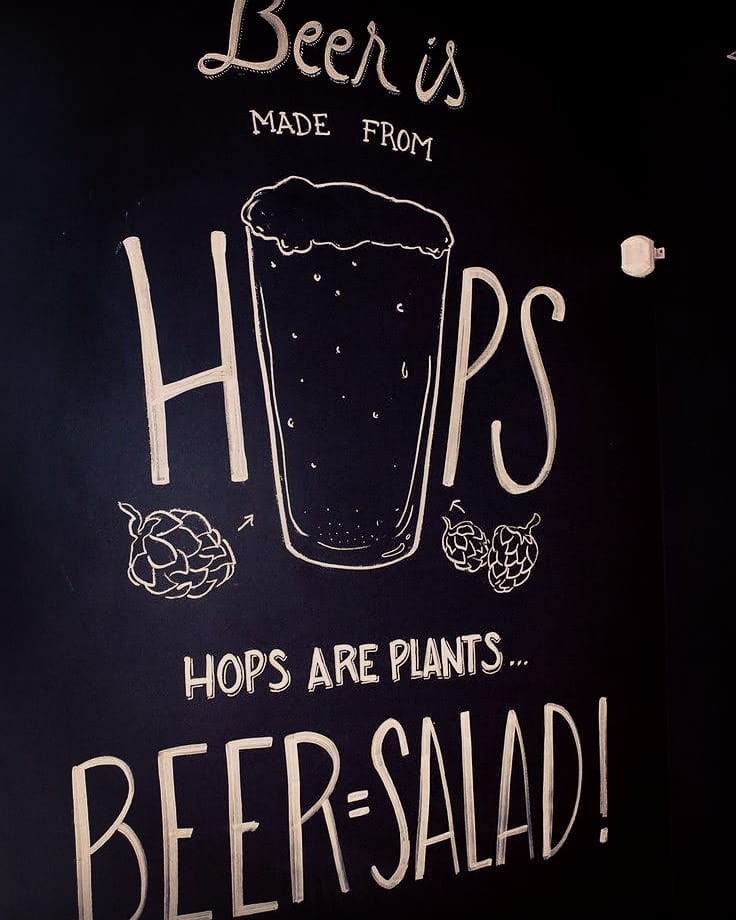 Beer is
MADE FROM
HOPS
HOPS ARE PLANTS...
BEER=SALAD!